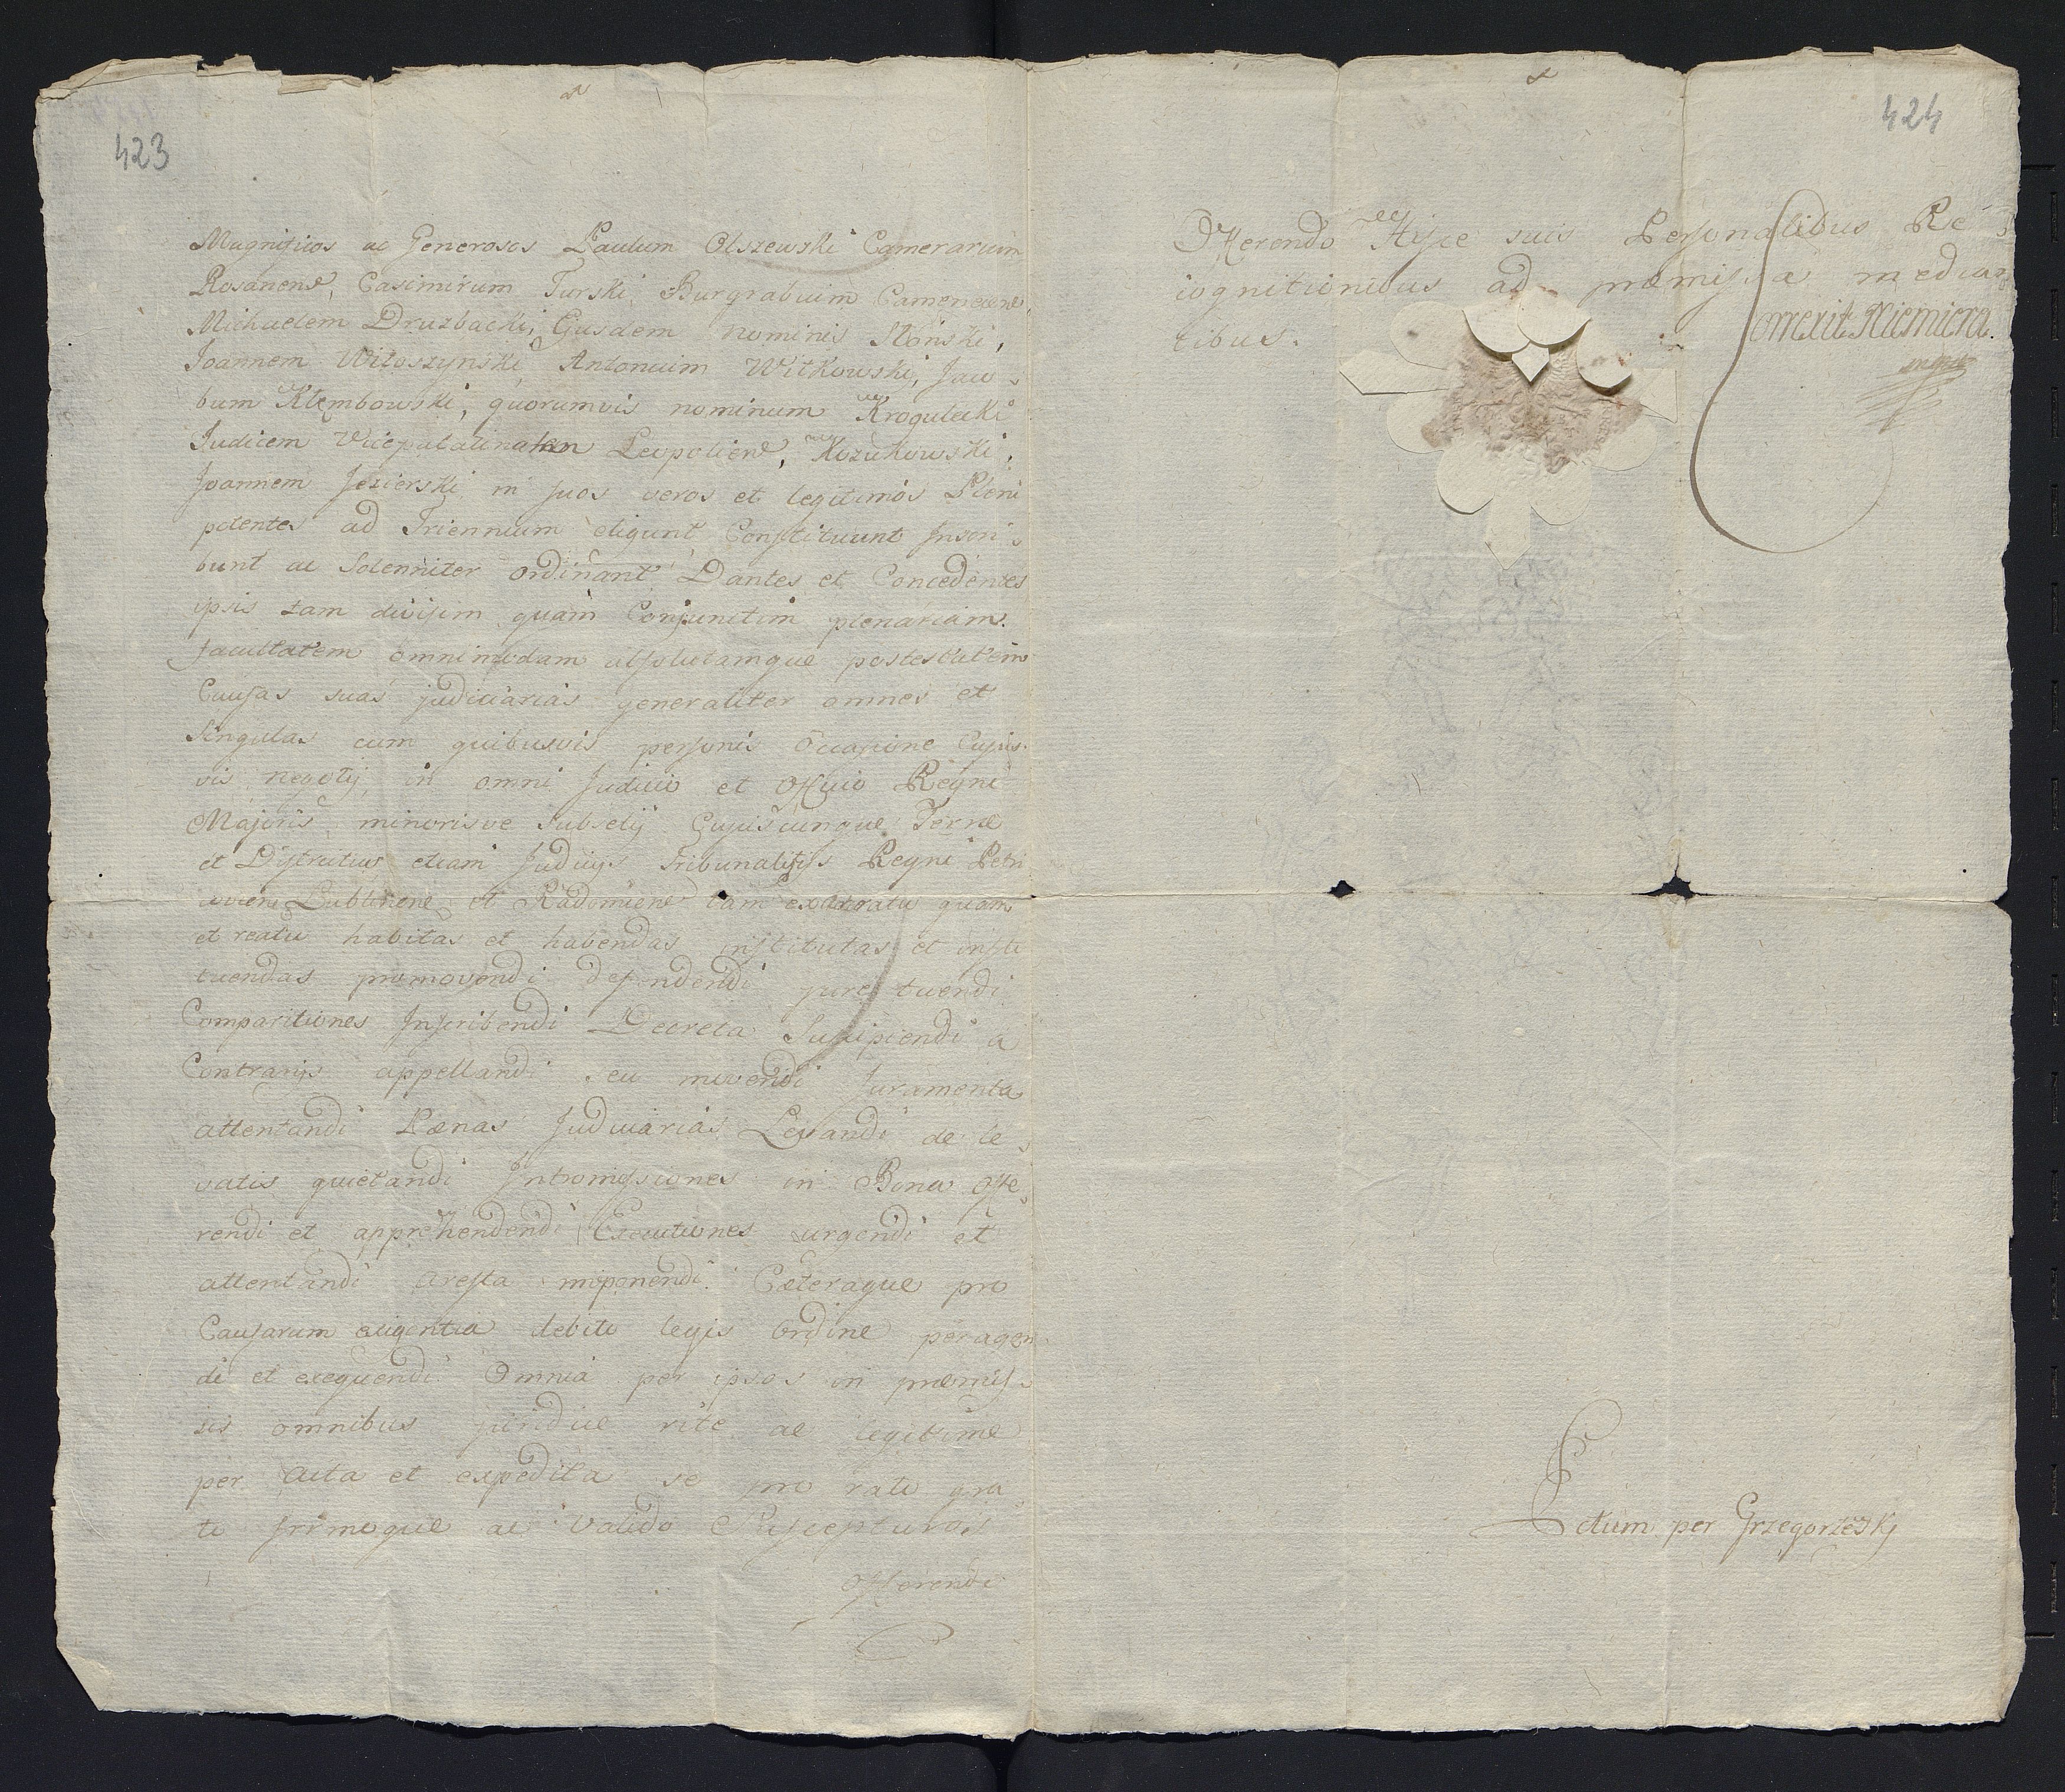 423
Magnificos ac Generosos Paulum Olszewski Camerarium
Rosanens, Casimirum Turski Burgrabium Camenecens,
Michaelem Druzbacki, Ejusdem nominis Słonski,
Joannem Witoszynski Antonium Witkowski, Jaco
bum Klembowski, quorumvis nominum Krogulecki
Judicem Vicepalatinalem Leopoliens, Kozukowski,
Joannem Jezierski in suos veros et legitimos Pleni
potentes ad Triennium eligunt Constituunt Inscri
bunt ac Solenniter ordinant Dantes et Concedentes
ipsis tam divisim quam Conjunctim plenariam
facultatem omnimodam absolutamque postestatem
Causas suas judiciarias generaliter omnes et
Singulas cum quibusvis personis occasione Cujus
vis negotij in omni Judicio et Officio Regni
Majoris minorisve subselij Cujuscunque Terræ
et Districtus etiam Judicijs Tribunalitijs Regni Petri
coviens Lublinens et Radomiens tam ex actoratu quam
et reatu habitas et habendas institutas et insti
tuendas promovendi defendendi jure tuendi
Comparitiones Inscribendi Decreta Suscipiendi à
Contrarijs appellandi seu movendi Juramenta
attentandi Pænas Judiciarias Levandi de le
vatis quietandi Intromissiones in Bona offe
rendi et apprehendendi Executiones urgendi et
attentandi aresta imponendi Cæteraque pro
Causarum exigentia debito legis ordine peragen
di et exequendi Omnia per ipsos in præmis
sis omnibus juridice rite ac legitime
per acta et expedita se pro rato gra
to firmoque ac valido Suscepturos
Offerendi
424
Offerendo Hisce suis Personalibus Re
cognitionibus ad præmissa median
tibus.
Correxit Niemiera.
mpp
Lectum per Grzegorzeskj